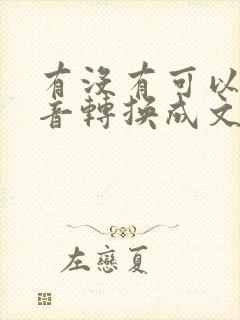 有沒有可以
音轉換成文
左戀夏